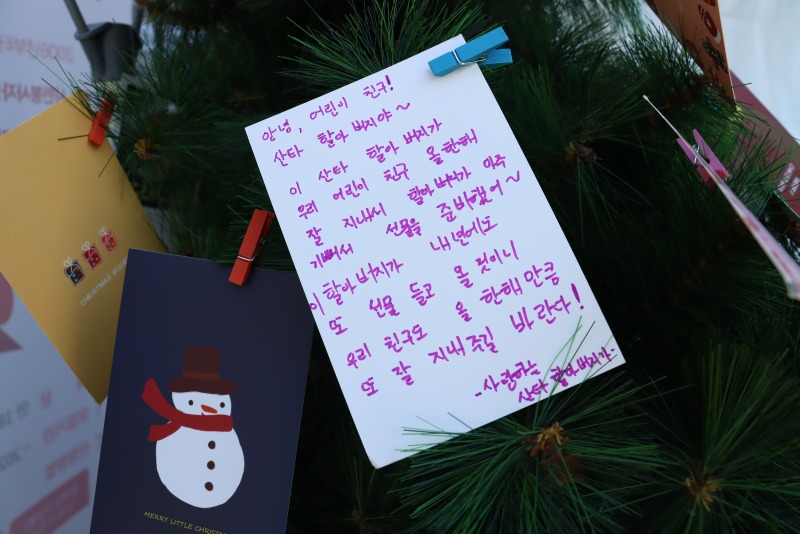 안녕, 어린이 친구!
산타 할아버지야~
이 산타 할아버지가
우리 어린이 친구 올 한해
잘 지내서 할아버지가 아주
기뻐서 선물을 준비했어~
이 할아버지가 내년에도
또 선물 들고 올 것이니
우리 친구도 올 한해 만큼
또 잘 지내주길 바란다!
-사랑하는
산타 할아버지가-
CHRISTMAS
MERRY LITTLE